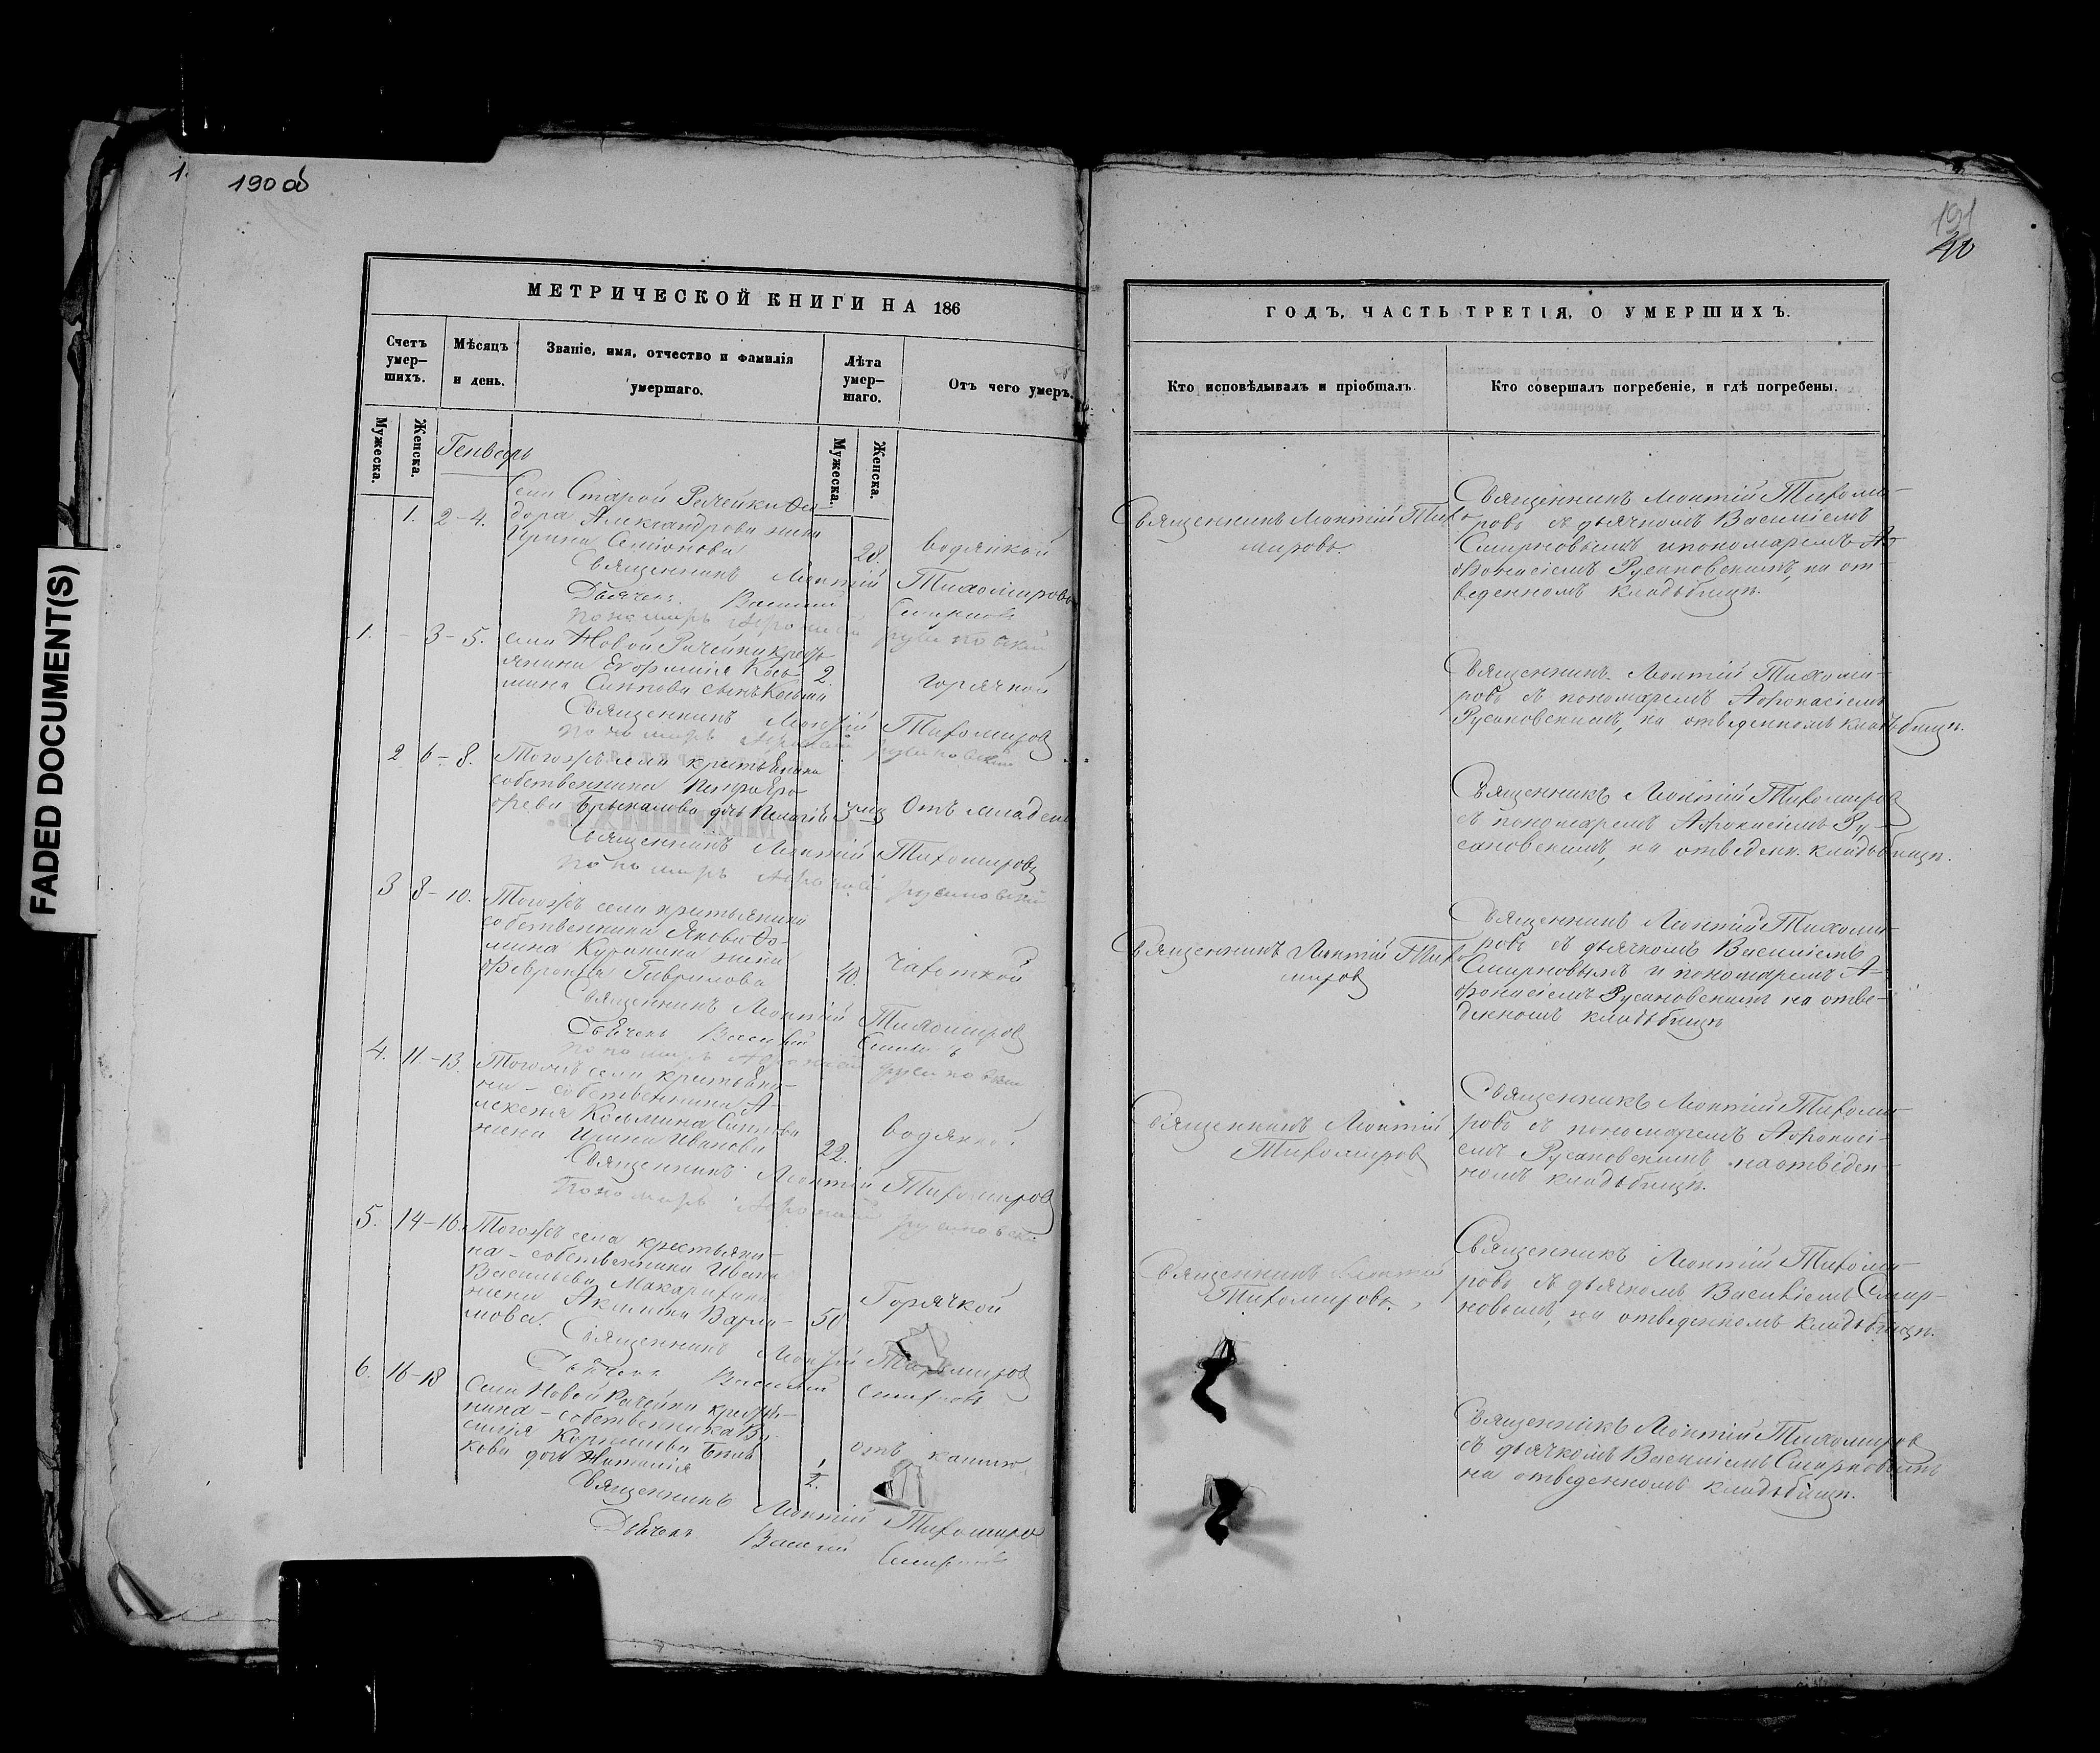 FADED DOCUMENT(S)
1.
190 об
191
40
МЕТРИЧЕСКОЙ КНИГИ НА 186
Счетъ умер—шихъ.
Мѣсяцъ и день.
Званіе, имя, отчество и фамилія умершаго.
Лѣта умер—шаго.
Отъ чего умеръ.
Мужеска.
Женска.
Мужеска.
Женска.
Генварь
1. 2-4.
Села Старой Рачейки Ѳео-
дора Александрова жена
Ирина Семіонова 28. водянкой
Священникъ Леонтій Тихомировъ
Дьячекъ Василий Смирновъ
Пономарь Афонасій Русановскій
1. 3-5.
Села Новой Рачейки кресть
янина Егор Козь-
мина Синнова сынъ Козьма 2. горячкой
Священникъ Леонтій Тихомировъ
Пономарь Афонасій Русановскій
2 6-8.
Тогожъ села крестьянина
собственника
дочь Пелагія 3 мц Отъ младен
Священникъ Леонтій Тихомировъ
Пономарь Афонасій Русановскій
3 8-10.
Тогожъ села крестьянина
собственника Якова Ѳо-
мина Курынина жена
Феврония Гаврилова 40. чахоткой
Священникъ Леонтій Тихомировъ
Дьячекъ Василий Смирновъ
Пономарь Афонасій Русановскій
4. 11-13.
Тогожъ села крестьяни-
на-собственника А-
лексея Козьмина Синнова
жена Ирина Иванова 22. водянкой
Священникъ Леонтій Тихомировъ
Пономарь Афонасій Русановскій
5. 14-16.
Тогожъ села крестьяни-
на-собственника Ивана
Васильева Макарихина
жена Акилина Варла-
мова. 50 Горячкой
Священникъ Леонтій Тихомировъ
Дьячекъ Василий Смирновъ
6. 16-18
Села Новой Рачейки кресть-
нина-собственника Ва-
силія Корнилова
кова дочь Наталия 1/2. отъ кашлю
Священникъ Леонтій Тихомиро
Дьячекъ Василий Смирновъ
ГОДЪ, ЧАСТЬ ТРЕТІЯ, О УМЕРШИХЪ.
Кто исповѣдывалъ и пріобщалъ.
Кто совершалъ погребеніе, и гдѣ погребены.
Священникъ Леонтій Тихо-
мировъ.
Священникъ Леонтій Тихоми-
ровъ съ дьячкомъ Василіемъ
Смирновымъ и пономаремъ А-
фонасіемъ Русановскимъ, на от-
веденномъ кладьбищѣ.
Священникъ Леонтій Тихоми-
ровъ съ пономаремъ Афонасіемъ
Русановскимъ, на отведенномъ кладьбищѣ.
Священникъ Леонтій Тихомировъ
съ пономаремъ Афонасіемъ Ру-
сановскимъ, на отведенн. кладьбищѣ.
Священникъ Леонтій Тихо
мировъ
Священникъ Леонтій Тихоми-
ровъ съ дьячкомъ Василіемъ
Смирновымъ и пономаремъ А-
фонасіемъ Русановскимъ на отве-
денномъ кладьбищѣ
Священникъ Леонтій
Тихомировъ
Священникъ Леонтій Тихоми-
ровъ съ пономаремъ Афонасі-
емъ Русановскимъ на отведен-
номъ кладьбищѣ.
Священникъ Леонтій
Тихомировъ.
Священникъ Леонтій Тихоми-
ровъ съ дьячкомъ Василіемъ Смир-
новымъ, на отведенномъ кладьбищѣ.
Священникъ Леонтій Тихомировъ
съ дьячкомъ Василіемъ Смирновымъ
на отведенномъ кладьбищѣ.